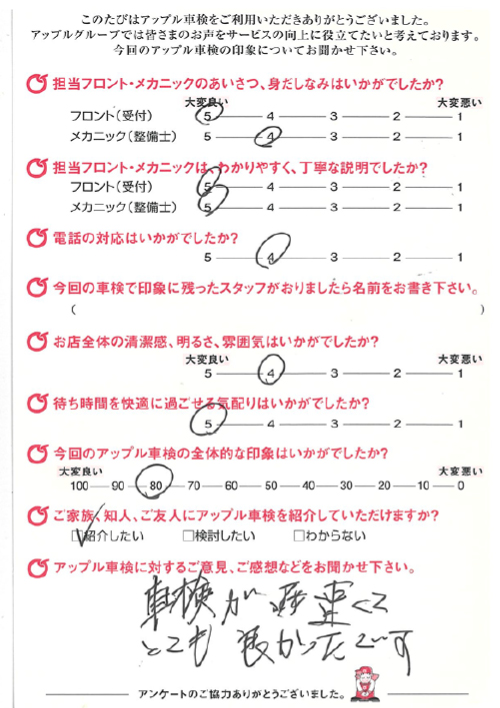 このたびはアップル車検をご利用いただきありがとうございました。
アップルグループでは皆さまのお声をサービスの向上に役立てたいと考えております。
今回のアップル車検の印象についてお聞かせ下さい。
担当フロント・メカニックのあいさつ、身だしなみはいかがでしたか?
大変良い 大変悪い
フロント(受付) 5 4 3 2 1
メカニック(整備士) 5 4 3 2 1
担当フロント・メカニックは、わかりやすく、丁寧な説明でしたか?
フロント(受付) 5 4 3 2 1
メカニック(整備士) 5 4 3 2 1
電話の対応はいかがでしたか?
5 4 3 2 1
今回の車検で印象に残ったスタッフがおりましたら名前をお書き下さい。
( )
お店全体の清潔感、明るさ、雰囲気はいかがでしたか?
大変良い 大変悪い
5 4 3 2 1
待ち時間を快適に過ごせる気配りはいかがでしたか?
5 4 3 2 1
今回のアップル車検の全体的な印象はいかがでしたか?
大変良い 大変悪い
100 90 80 70 60 50 40 30 20 10 0
ご家族、知人、ご友人にアップル車検を紹介していただけますか?
□紹介したい □検討したい □わからない
アップル車検に対するご意見、ご感想などをお聞かせ下さい。
車検が迅速で
とても良かったです
アンケートのご協力ありがとうございました。